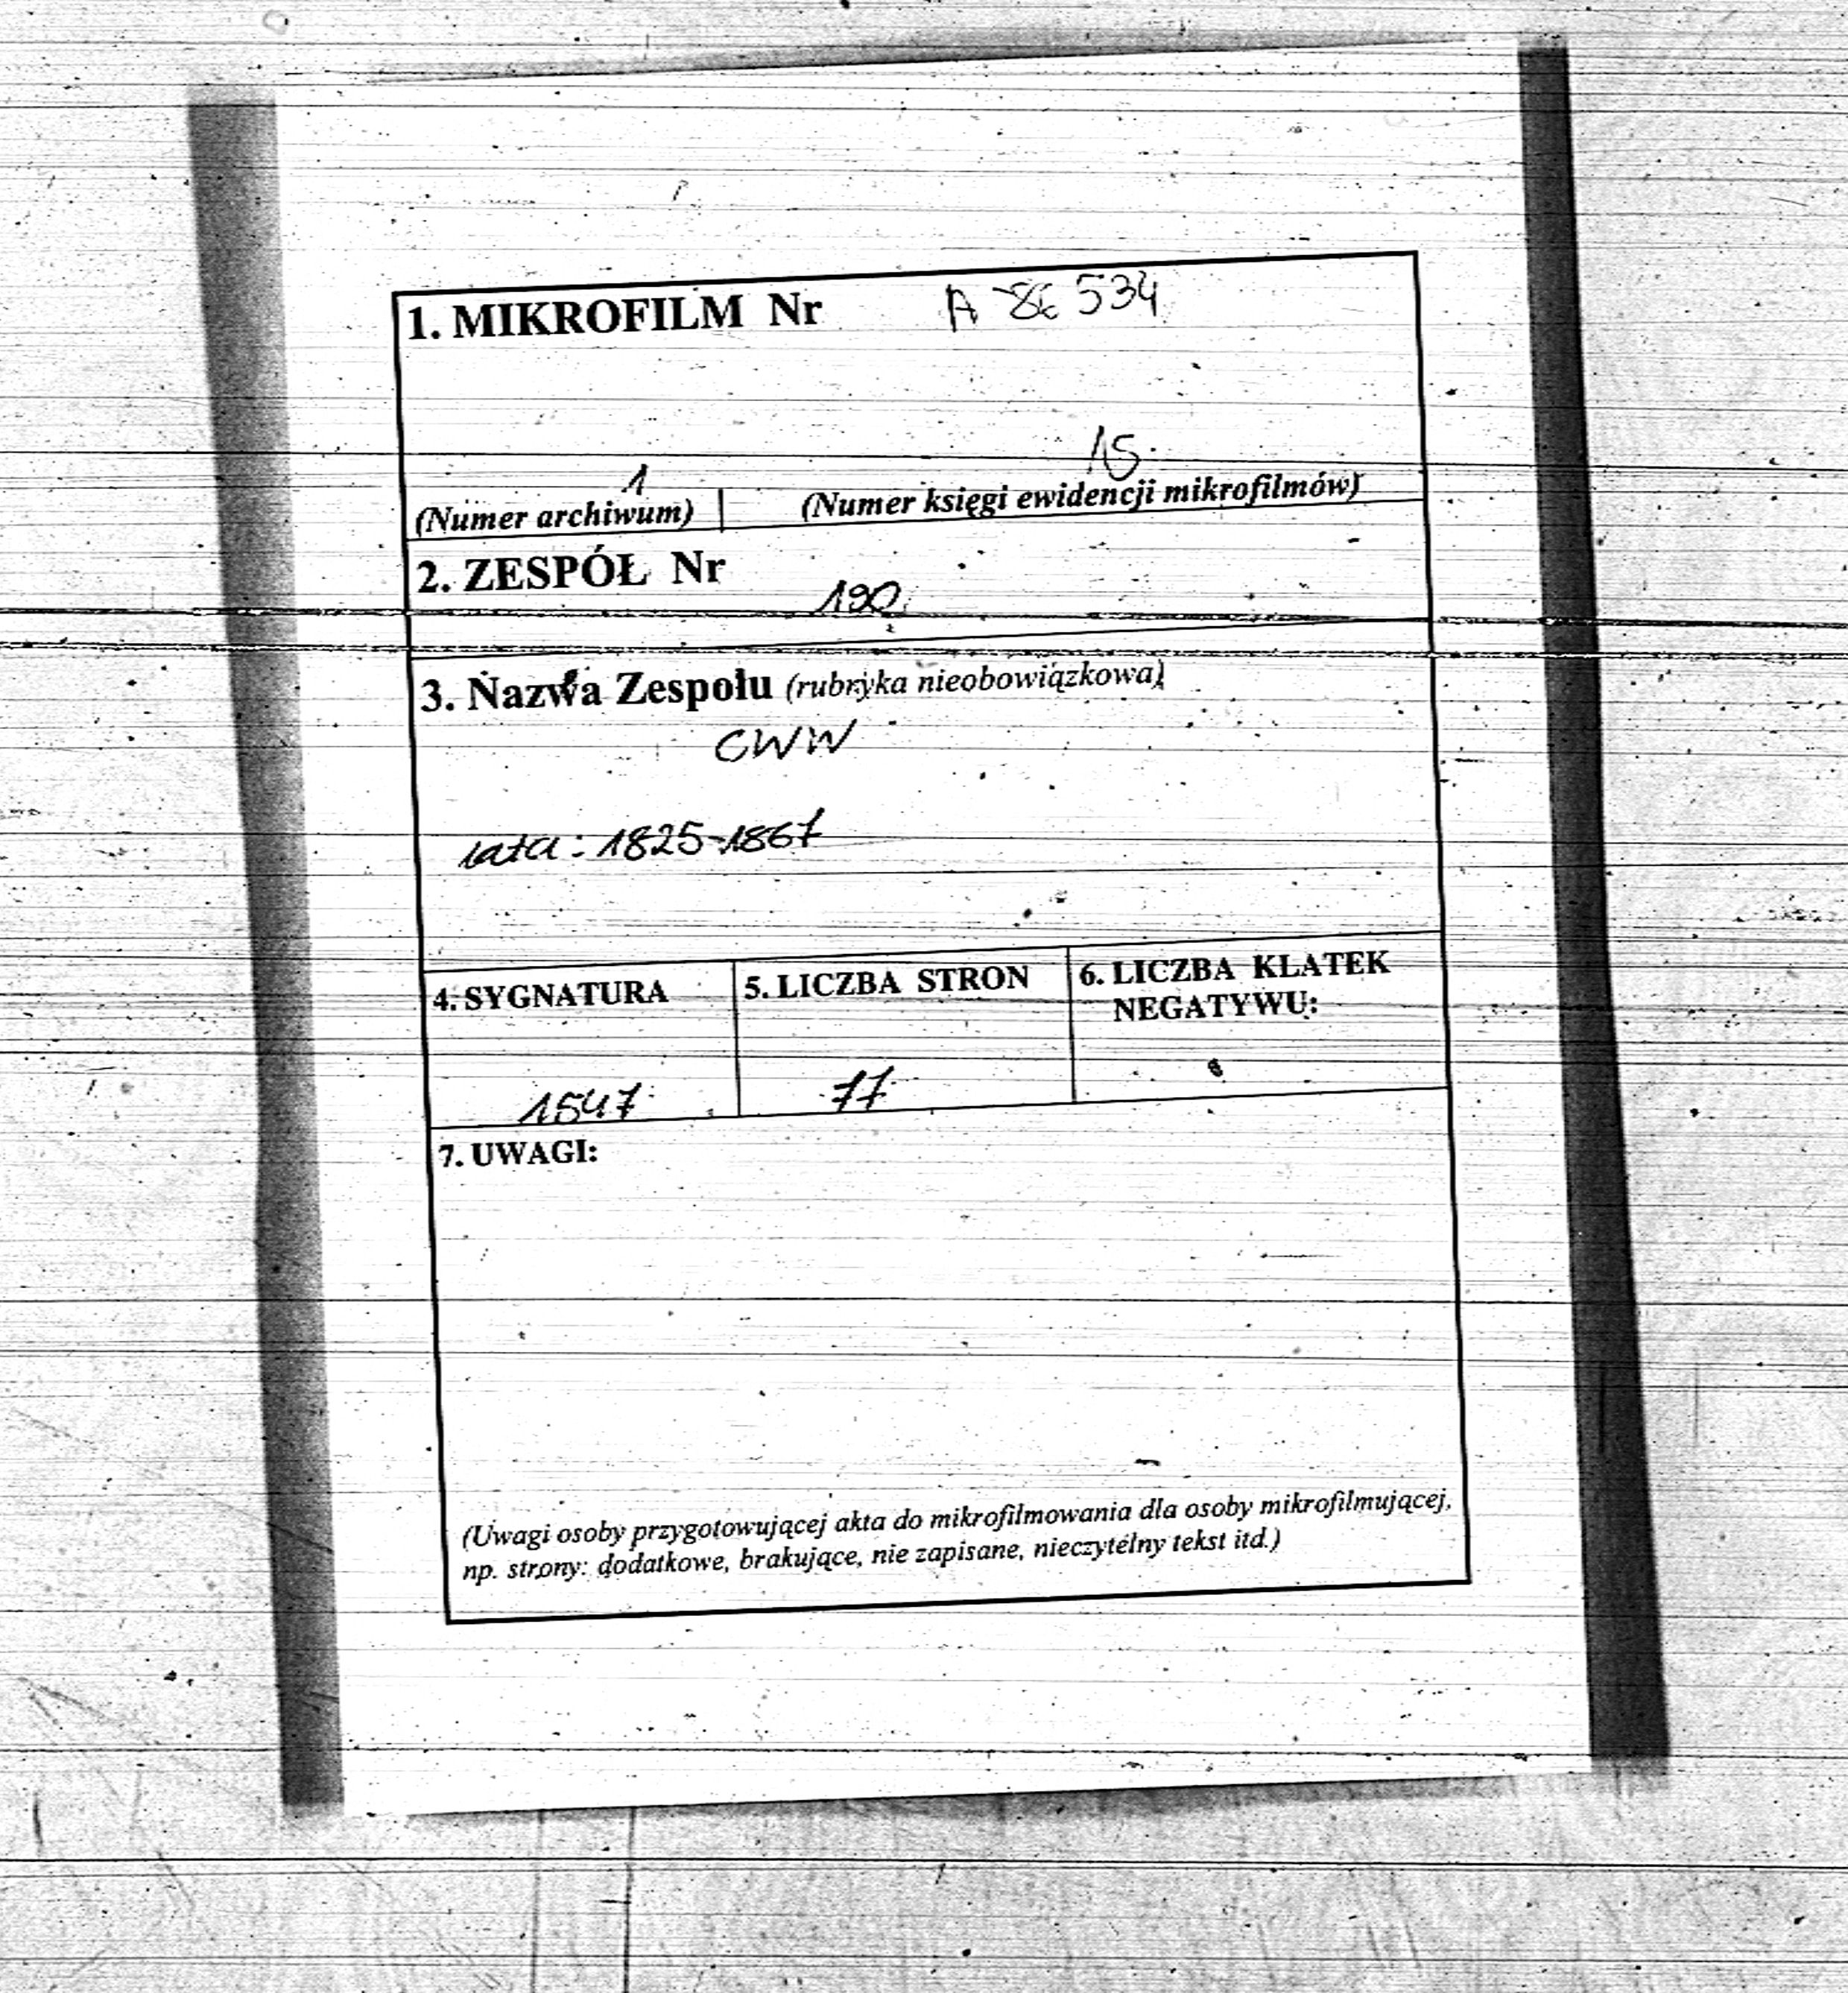 1. MIKROFILM Nr A 534
1 15
(Numer archiwum) | (Numer księgi ewidencji mikrofilmów)
2. ZESPÓŁ Nr
190
3. Nazwa Zespołu (rubryka nieobowiązkowa)
CWW
lata: 1825-1867
4. SYGNATURA 5. LICZBA STRON 6. LICZBA KLATEK
NEGATYWU:
1547 77
7. UWAGI:
(Uwagi osoby przygotowującej akta do mikrofilmowania dla osoby mikrofilmującej,
np. strony: dodatkowe, brakujące, nie zapisane, nieczytelny tekst itd.)